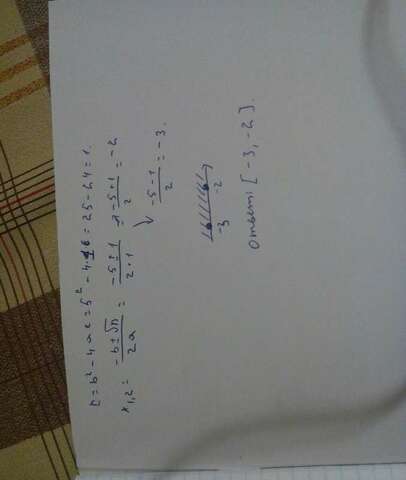 D = b² - 4ac = 5² - 4·1·6 = 25 - 24 = 1.
x₁,₂ = (-b ± √D)/2a = (-5 ± 1)/(2·1) = (-5+1)/2 = -2
(-5-1)/2 = -3.
-3 -2
Ответ: [-3, -2].